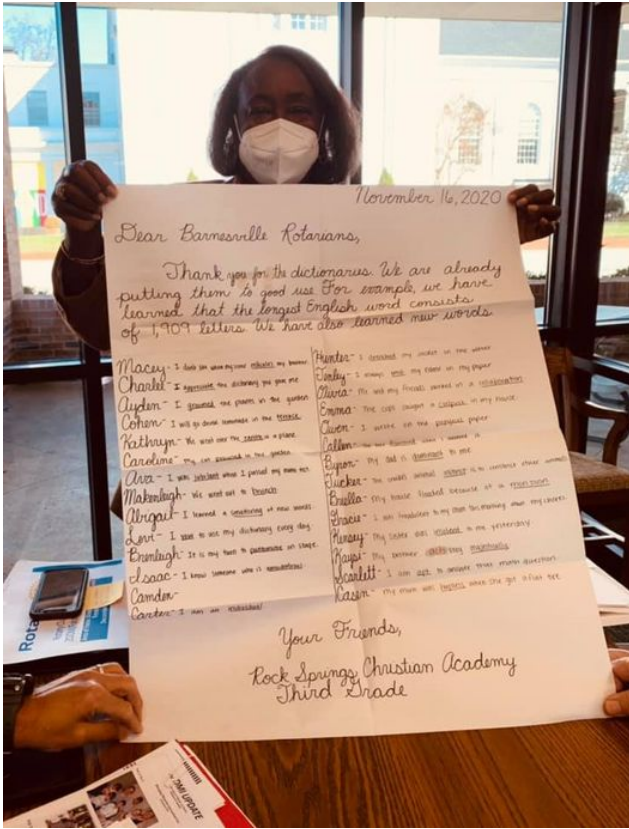 November 16, 2020
Dear Barnesville Rotarians,
Thank you for the dictionaries. We are already
putting them to good use For example, we have
learned that the longest English word consists
of 1,909 letters. We have also learned new words.
Macey - I don't like when my sister my
Charlee - I appreciate the dictionary you gave me
Ayden - I the plants in the garden
Cohen - I will go drink lemonade in the terrace
Kathryn - We went over the in a plane
Caroline - My cat in the garden
Ava - I was jubilant when I passed my math test
Makenleigh - We went out to brunch
Abigail - I learned a smattering of new words.
Levi - I to use my dictionary every day.
Brenleigh - It is my turn to on stage.
Isaac - I know someone who is
Camden -
Carter - I am an individual
Hunter - I my jacket in the
Tenley - I always my name on my paper
Olivia - Me and my friends worked in a collaboration
Emma - The cops caught a culprit in my house.
Owen - I wrote on the paper
Callen - when I it
Byron - My dad is dominant to me
Tucker - The animal instinct is to other animals
Briella - My house flooded because of a monsoon
Gracie - I am to my mom for my chores.
Kinsey - My sister was to me yesterday
Kaysi - My brother
Scarlett - I am apt to answer that math question
Kasen - My mom was when she got a flat tire
Your Friends,
Rock Springs Christian Academy
Third Grade
Rota
TMI UPDATE